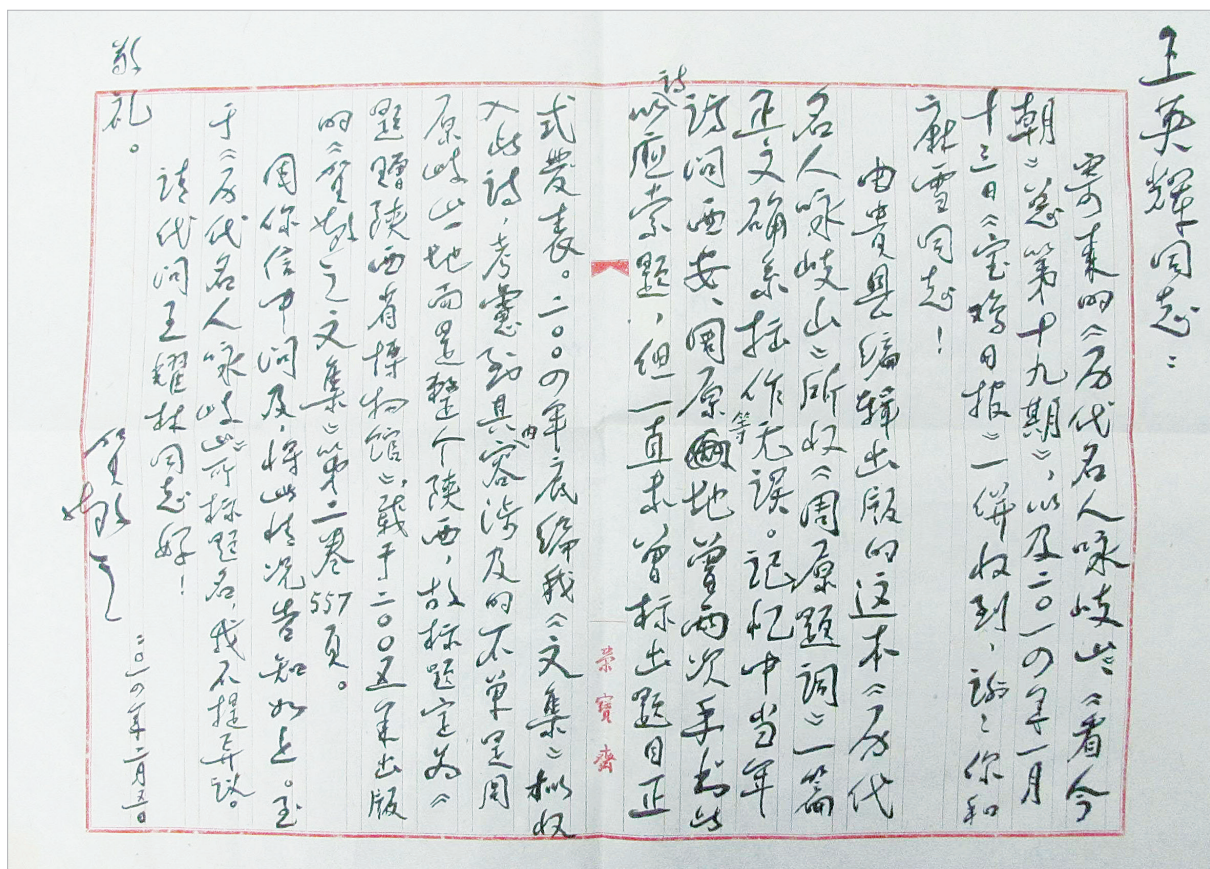 王英辉同志：
寄来的《历代名人咏岐山》、《看今
朝》总第十九期》，以及二〇一四年一月
十三日《宝鸡日报》一併收到，谢谢你和
麻雪同志！
由贵县编辑出版的这本《历代
名人咏岐山》所收《周原题词》一篇
正文确系拙作无误。记忆中当年
诗问西安、周原等地曾两次手书此
诗以应索题，但一直未曾标出题目正
式发表。二〇〇四年底编我《文集》拟收
入此诗，考虑到其内容涉及的不单是周
原岐山一地而是整个陕西，故标题定为《
题赠陕西省博物馆》，载于二〇〇五年出版
的《贺敬之文集》第二卷557页。
因你信中问及，将此情况告知如上。至
于《历代名人咏岐山》所标题名，我不提异议。
请代问王耀林同志好！
敬
礼。
贺敬之
二〇一四年二月五日
荣宝斋